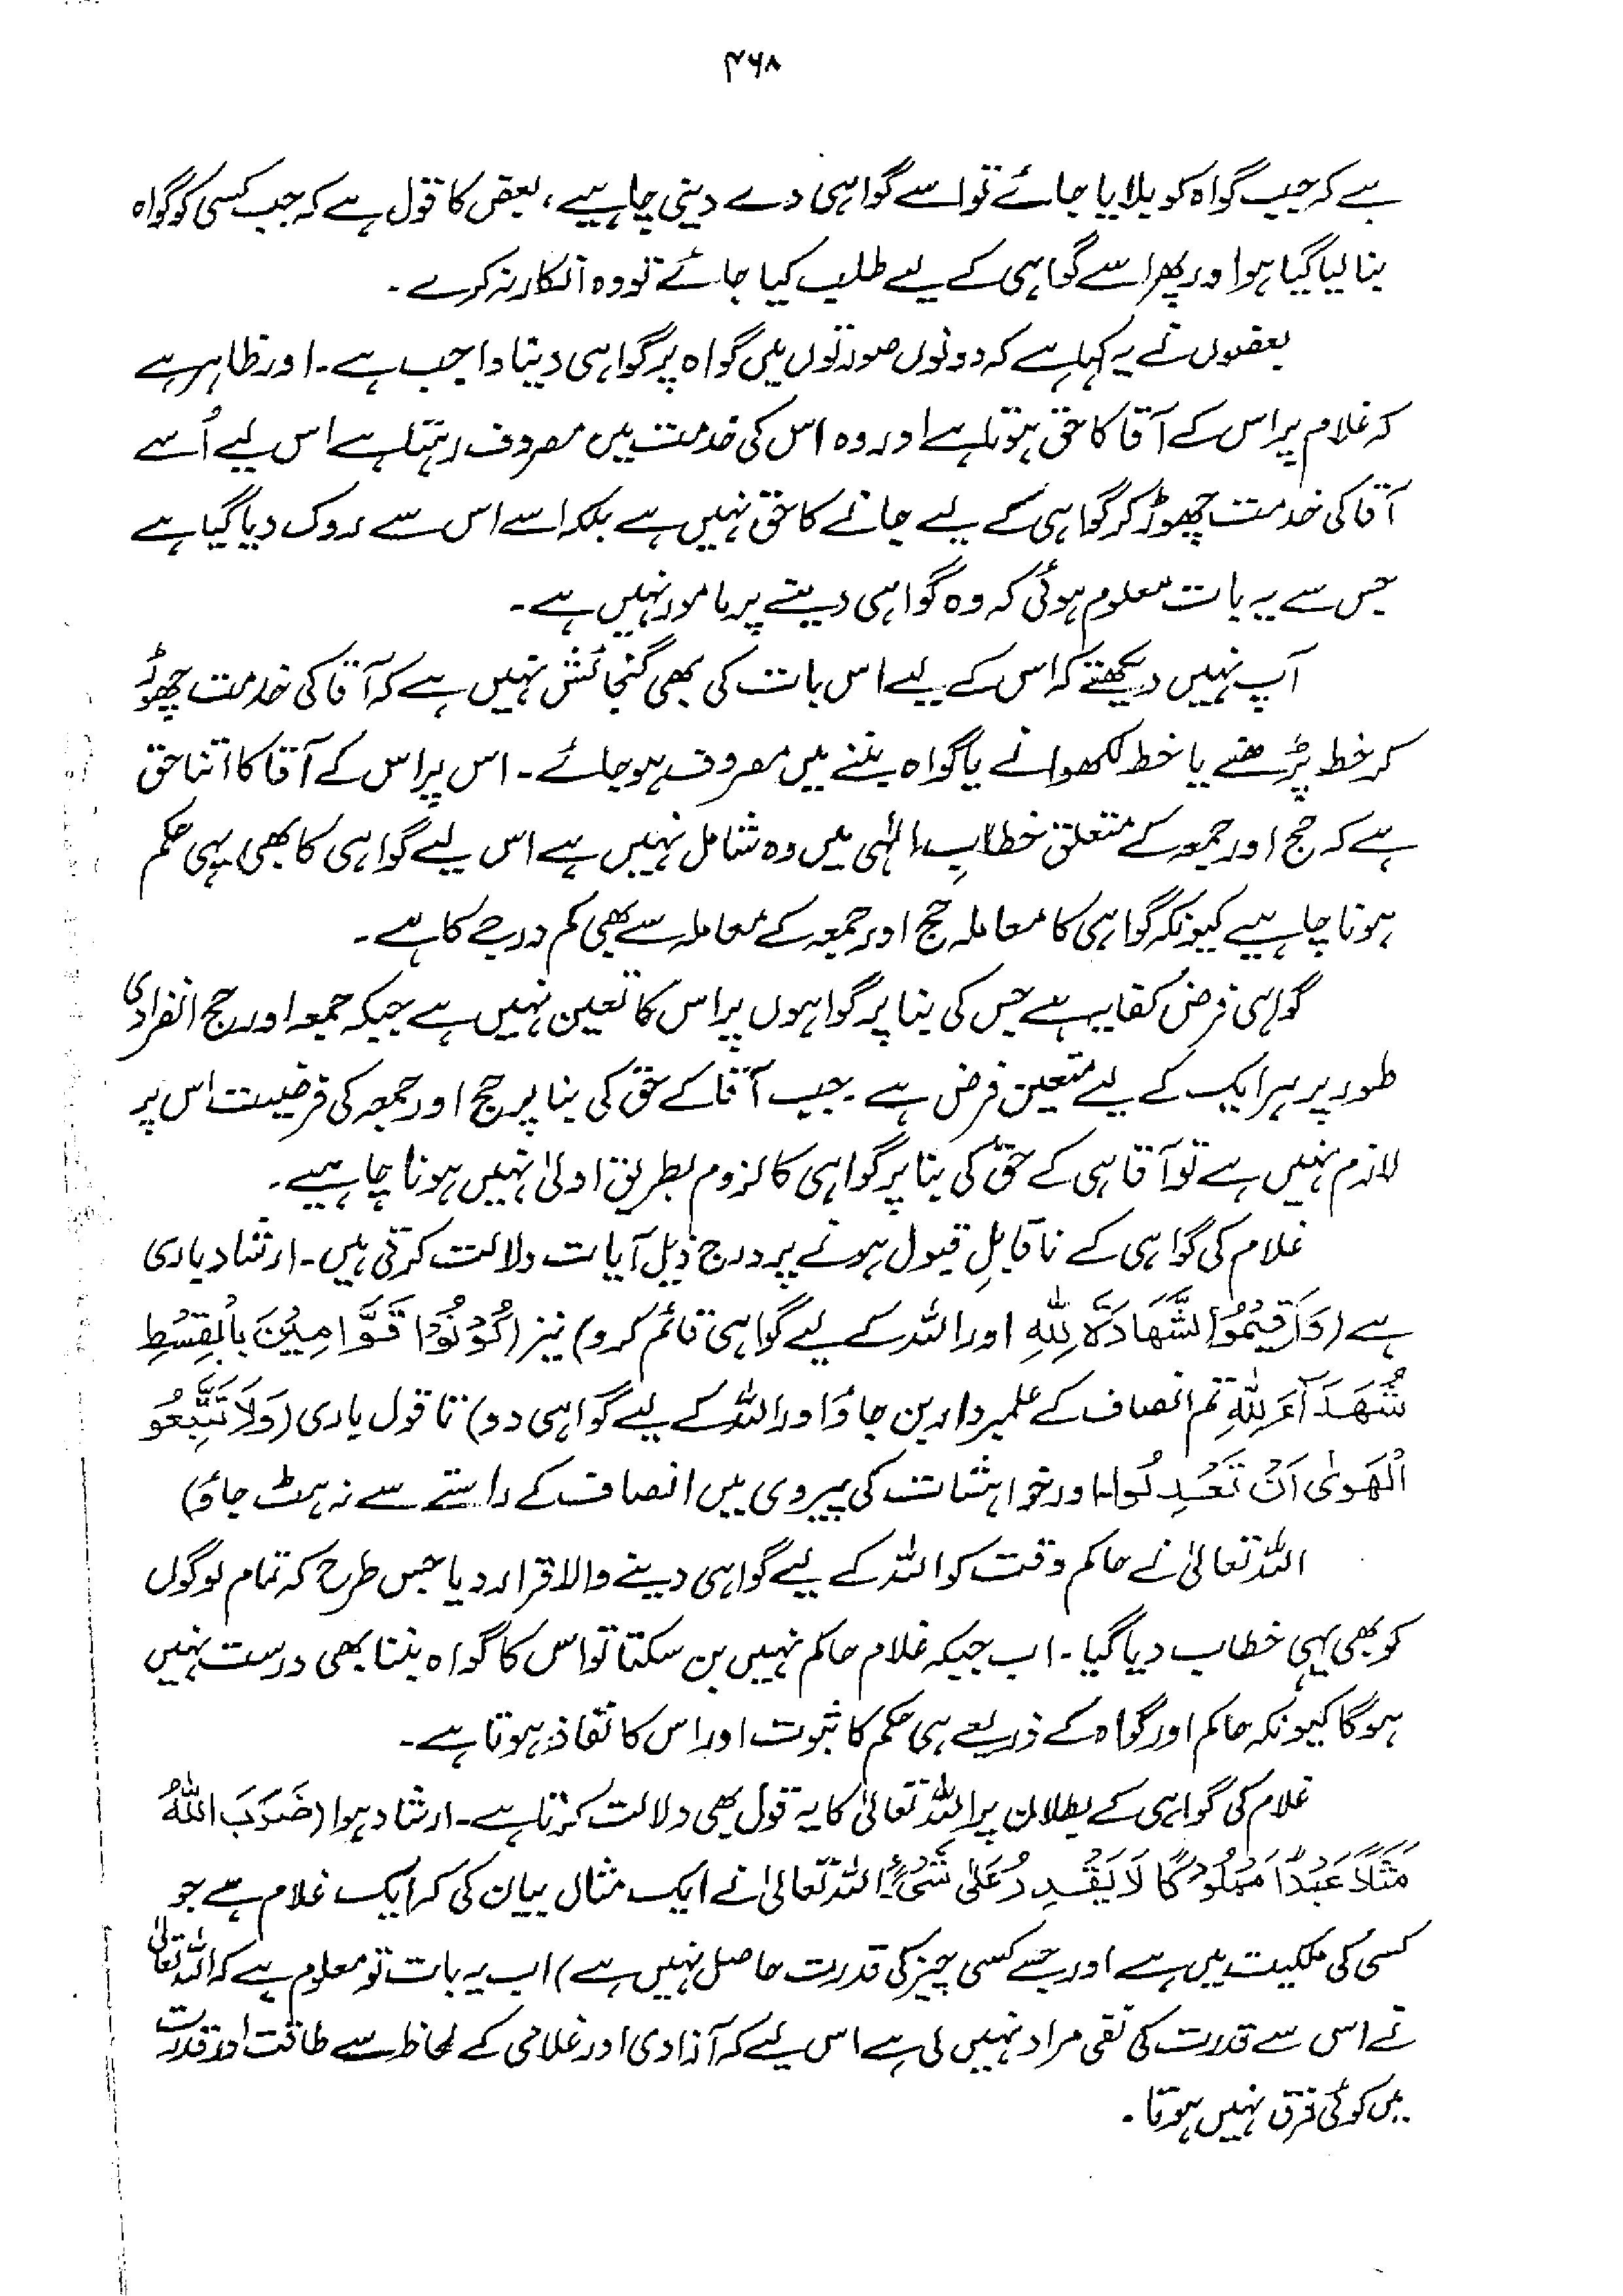 ۴۶۸
ہے کہ جب گواہ کو بلایا جائے تو اسے گواہی دے دینی چاہیے، بعض کا قول ہے کہ جب کسی کو گواہ
بنا لیا گیا ہو اور پھر اسے گواہی کے لیے طلب کیا جائے تو وہ انکار نہ کرے۔
بعضوں نے یہ کہا ہے کہ دونوں صورتوں میں گواہ پر گواہی دینا واجب ہے۔ اور ظاہر ہے
کہ غلام پر اس کے آقا کا حق ہوتا ہے اور وہ اس کی خدمت میں مصروف رہتا ہے اس لیے اُسے
آقا کی خدمت چھوڑ کر گواہی کے لیے جانے کا حق نہیں ہے بلکہ اسے اس سے روک دیا گیا ہے
جس سے یہ بات معلوم ہوئی کہ وہ گواہی دینے پر مامور نہیں ہے۔
آپ نہیں دیکھتے کہ اس کے لیے اس بات کی بھی گنجائش نہیں ہے کہ آقا کی خدمت چھوڑ
کر خط پڑھنے یا خط لکھوانے یا گواہ بننے میں مصروف ہو جائے۔ اس پر اس کے آقا کا اتنا حق
ہے کہ حج اور جمعہ کے متعلق خطابِ الٰہی میں وہ شامل نہیں ہے اس لیے گواہی کا بھی یہی حکم
ہونا چاہیے کیونکہ گواہی کا معاملہ حج اور جمعہ کے معاملہ سے بھی کم درجے کا ہے۔
گواہی فرض کفایہ ہے جس کی بنا پر گواہوں پر اس کا تعین نہیں ہے جبکہ جمعہ اور حج انفرادی
طور پر ہر ایک کے لیے متعین فرض ہے۔ جب آقا کے حق کی بنا پر حج اور جمعہ کی فرضیت اس پر
لازم نہیں ہے تو آقا ہی کے حق کی بنا پر گواہی کا لزوم بطریق اولیٰ نہیں ہونا چاہیے۔
غلام کی گواہی کے ناقابلِ قبول ہونے پر درج ذیل آیات دلالت کرتی ہیں۔ ارشاد باری
ہے (وَاَقِیْمُوا الشَّھَادَۃَ لِلّٰہِ اور اللہ کے لیے گواہی قائم کرو) نیز (کُوْنُوْا قَوَّامِیْنَ بِالْقِسْطِ
شُھَدَآءَ لِلّٰہِ تم انصاف کے علمبردار بن جاؤ اور اللہ کے لیے گواہی دو) تا قول باری (وَلَا تَتَّبِعُو
الْھَوٰی اَنْ تَعْدِلُوا۔ اور خواہشات کی پیروی میں انصاف کے راستے سے نہ ہٹ جاؤ)
اللہ تعالیٰ نے حاکم وقت کو اللہ کے لیے گواہی دینے والا قرار دیا جس طرح کہ تمام لوگوں
کو بھی یہی خطاب دیا گیا۔ اب جبکہ غلام حاکم نہیں بن سکتا تو اس کا گواہ بننا بھی درست نہیں
ہوگا کیونکہ حاکم اور گواہ کے ذریعے ہی حکم کا ثبوت اور اس کا نفاذ ہوتا ہے۔
غلام کی گواہی کے بطلان پر اللہ تعالیٰ کا یہ قول بھی دلالت کرتا ہے۔ ارشاد ہوا (ضَرَبَ اللّٰہُ
مَثَلًا عَبْدًا مَمْلُوْکًا لَا یَقْدِرُ عَلٰی شَیْءٍ اللہ تعالیٰ نے ایک مثال بیان کی کہ ایک غلام ہے جو
کسی کی ملکیت میں ہے اور جسے کسی چیز کی قدرت حاصل نہیں ہے) اب یہ بات تو معلوم ہے کہ اللہ تعالیٰ
نے اس سے قدرت کی نفی مراد نہیں لی ہے اس لیے کہ آزادی اور غلامی کے لحاظ سے طاقت اور قدرت
میں کوئی فرق نہیں ہوتا۔